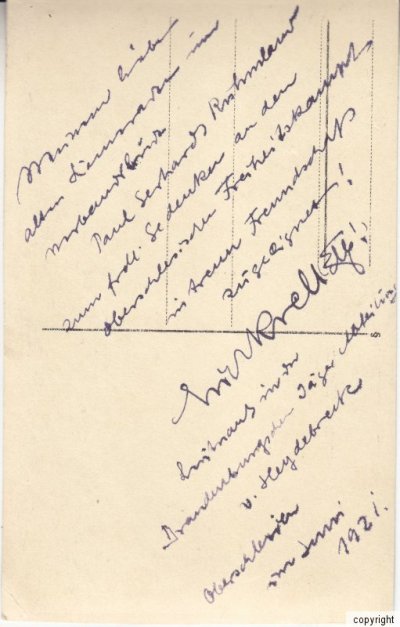 Meinem lieben
alten Kameraden im
Verbandsbruder
Paul Gerhards
zum frdl. Gedenken an den
Oberschlesischen Freiheitskampf
in treuer Freundschaft
zugeeignet!
Leutnant in der
Brandenburgischen Jäger Abteilung
v. Heydebreck
Oberschlesien
im Juni
1921.
copyright